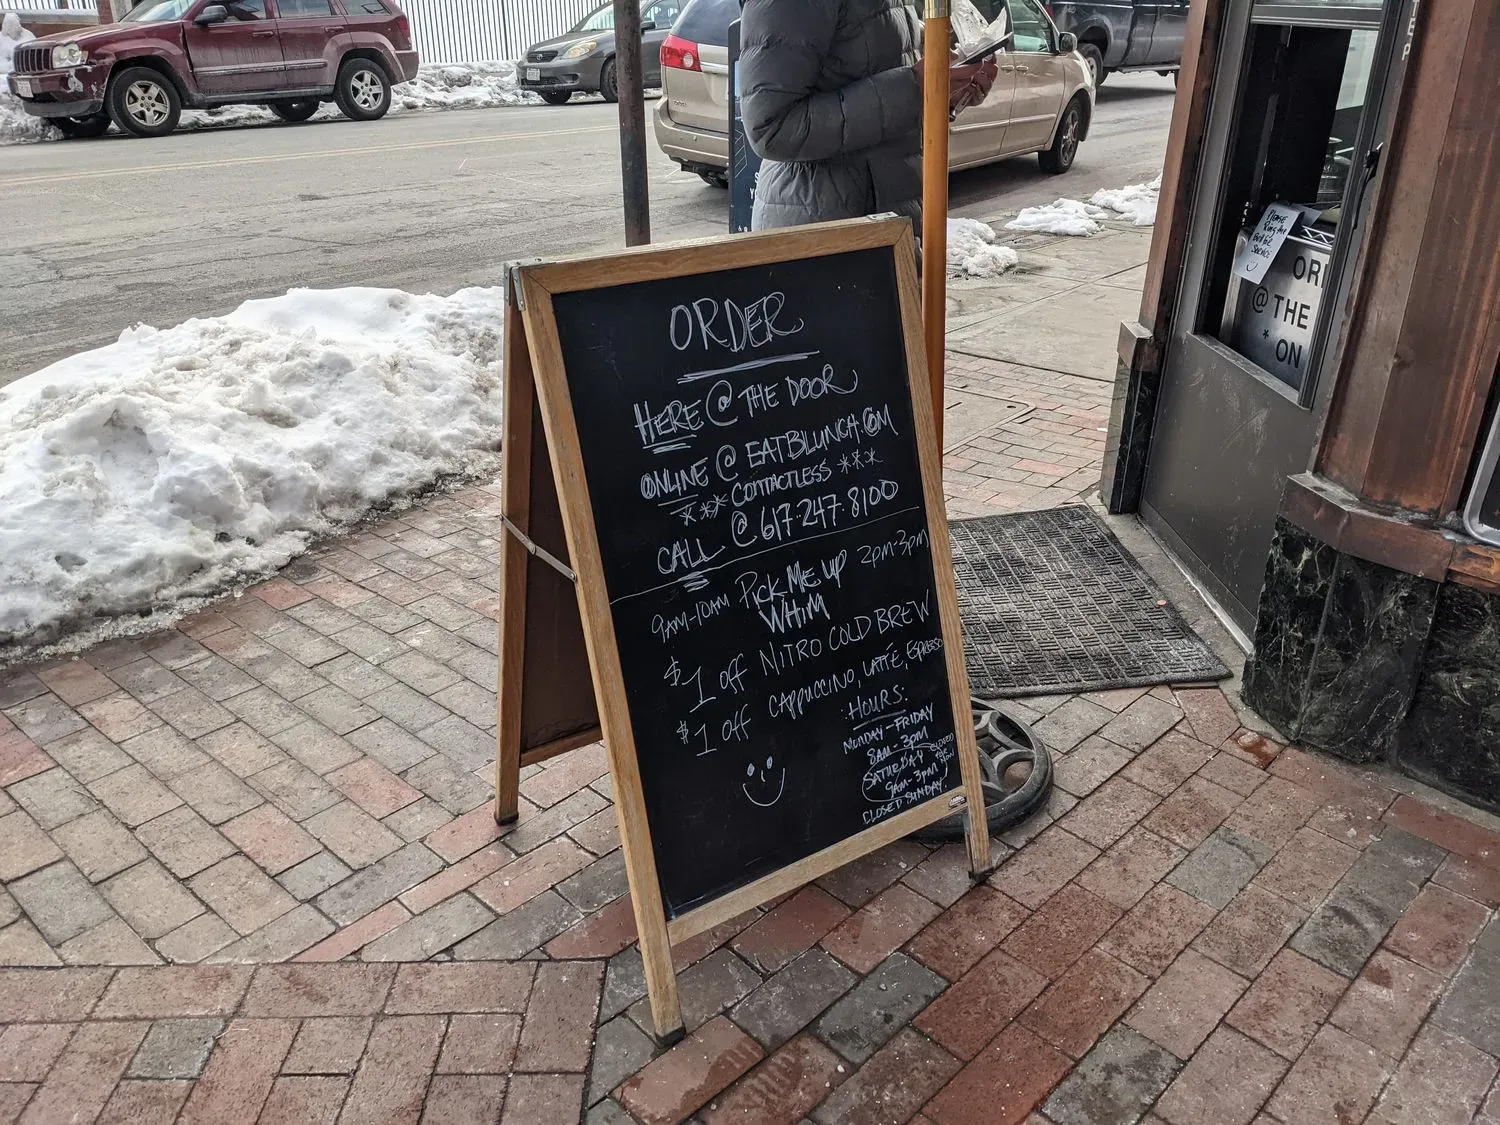 ORDER
HERE @ THE DOOR
ONLINE @ EATBLUNCH.COM
*** CONTACTLESS ***
CALL @ 617·247·8100
9AM-10AM PICK ME UP 2PM-3PM
WHIM
$1 off NITRO COLD BREW
$1 off CAPPUCCINO, LATTE, ESPRESSO
HOURS:
MONDAY-FRIDAY
8AM-3PM
SATURDAY CLOSED FOR NOW
9AM-3PM
CLOSED SUNDAY!
PLEASE
RING THE
BELL FOR
SERVICE
OR
@ THE
* ON